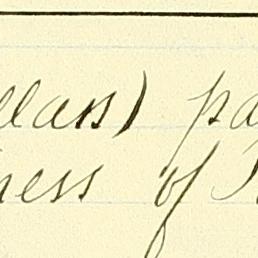 llars) pa
ness of